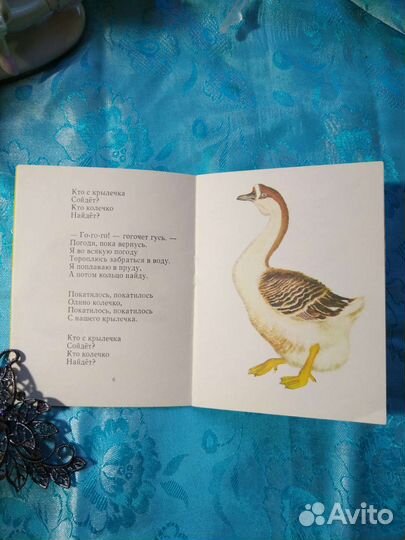 Кто с крылечка
Сойдёт?
Кто колечко
Найдёт?
— Го-го-го! — гогочет гусь. —
Погоди, пока вернусь.
Я во всякую погоду
Тороплюсь забраться в воду.
Я поплаваю в пруду,
А потом кольцо найду.
Покатилось, покатилось
Олино колечко,
Покатилось, покатилось
С нашего крылечка.
Кто с крылечка
Сойдёт?
Кто колечко
Найдёт?
6
Avito